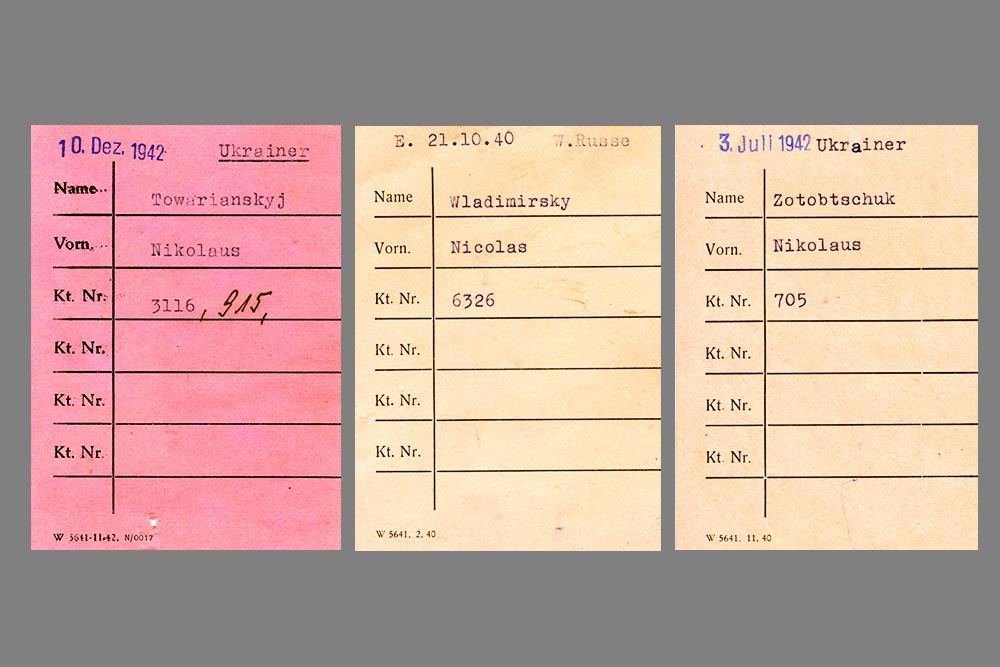 10. Dez. 1942 Ukrainer
Name
Towarianskyj
Vorn.
Nikolaus
Kt. Nr.
3116, 915,
Kt. Nr.
Kt. Nr.
Kt. Nr.
W 5641-11.42. N/0017
E. 21.10.40 W.Russe
Name
Wladimirsky
Vorn.
Nicolas
Kt. Nr.
6326
Kt. Nr.
Kt. Nr.
Kt. Nr.
W 5641. 2. 40
3. Juli 1942 Ukrainer
Name
Zotobtschuk
Vorn.
Nikolaus
Kt. Nr.
705
Kt. Nr.
Kt. Nr.
Kt. Nr.
W 5641. 11. 40